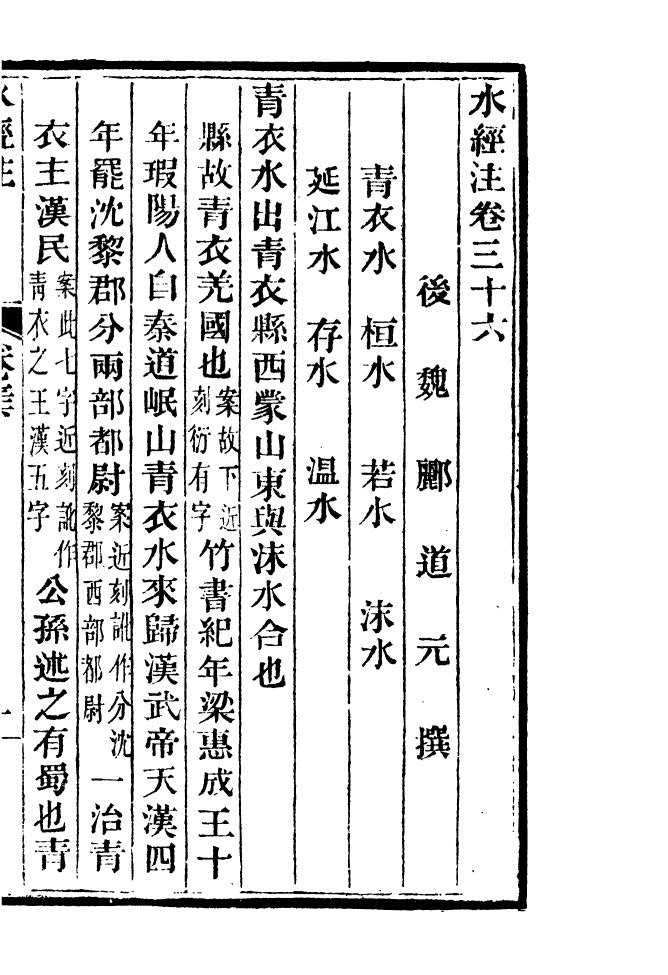 水經注卷三十六
後魏酈道元撰
青衣水　桓水　若水　沫水
延江水　存水　温水
青衣水出青衣縣西蒙山東與沫水合也
縣故青衣羌國也案故下近刻衍有字竹書紀年梁惠成王十
年瑕陽人自秦道岷山青衣水來歸漢武帝天漢四
年罷沈黎郡分兩部都尉案近刻訛作分沈黎郡西部都尉一治青
衣主漢民案此七字近刻訛作青衣之王漢五字公孫述之有蜀也青
水經注